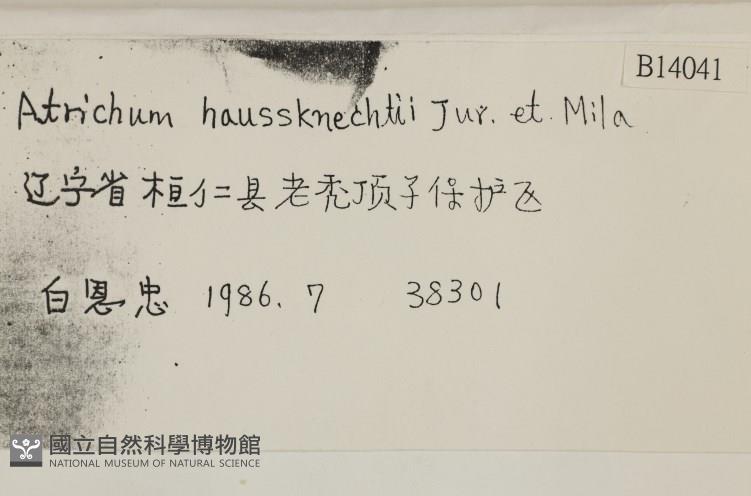 B14041
Atrichum haussknechtii Jur. et. Mila
辽宁省桓仁县老秃顶子保护区
白恩忠 1986. 7 38301
國立自然科學博物館
NATIONAL MUSEUM OF NATURAL SCIENCE